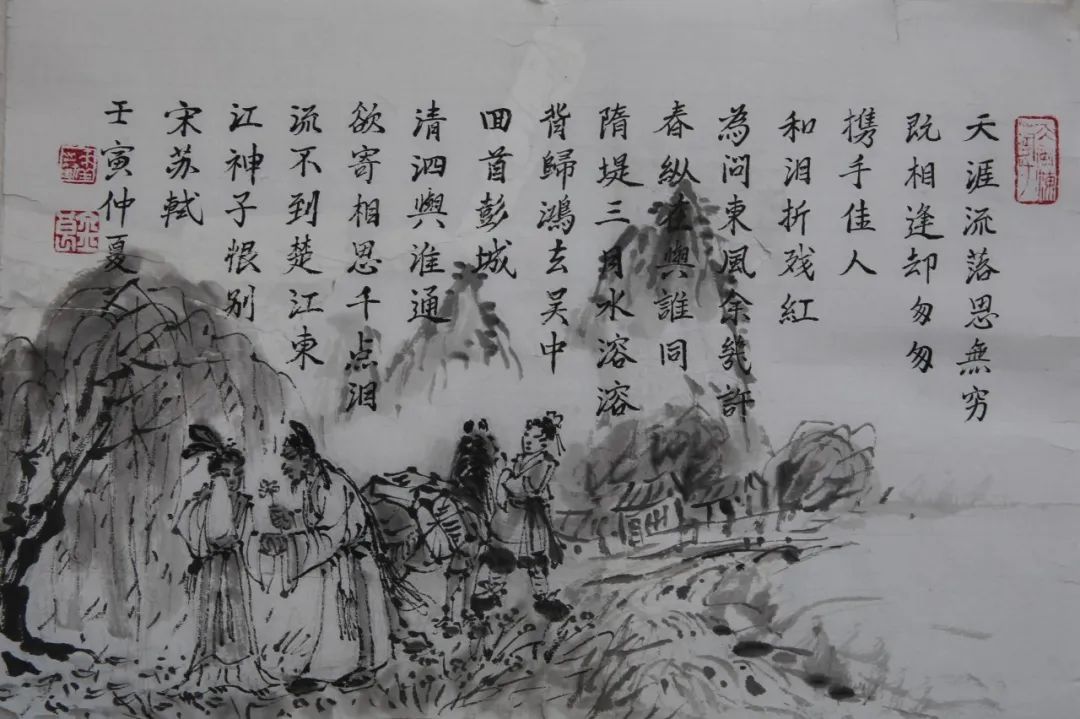 天涯流落思無穷
既相逢却匆匆
携手佳人
和泪折残紅
為問東風余幾許
春纵在與誰同
隋堤三月水溶溶
背歸鴻去吴中
回首彭城
清泗與淮通
欲寄相思千点泪
流不到楚江東
江神子恨别
宋苏轼
壬寅仲夏